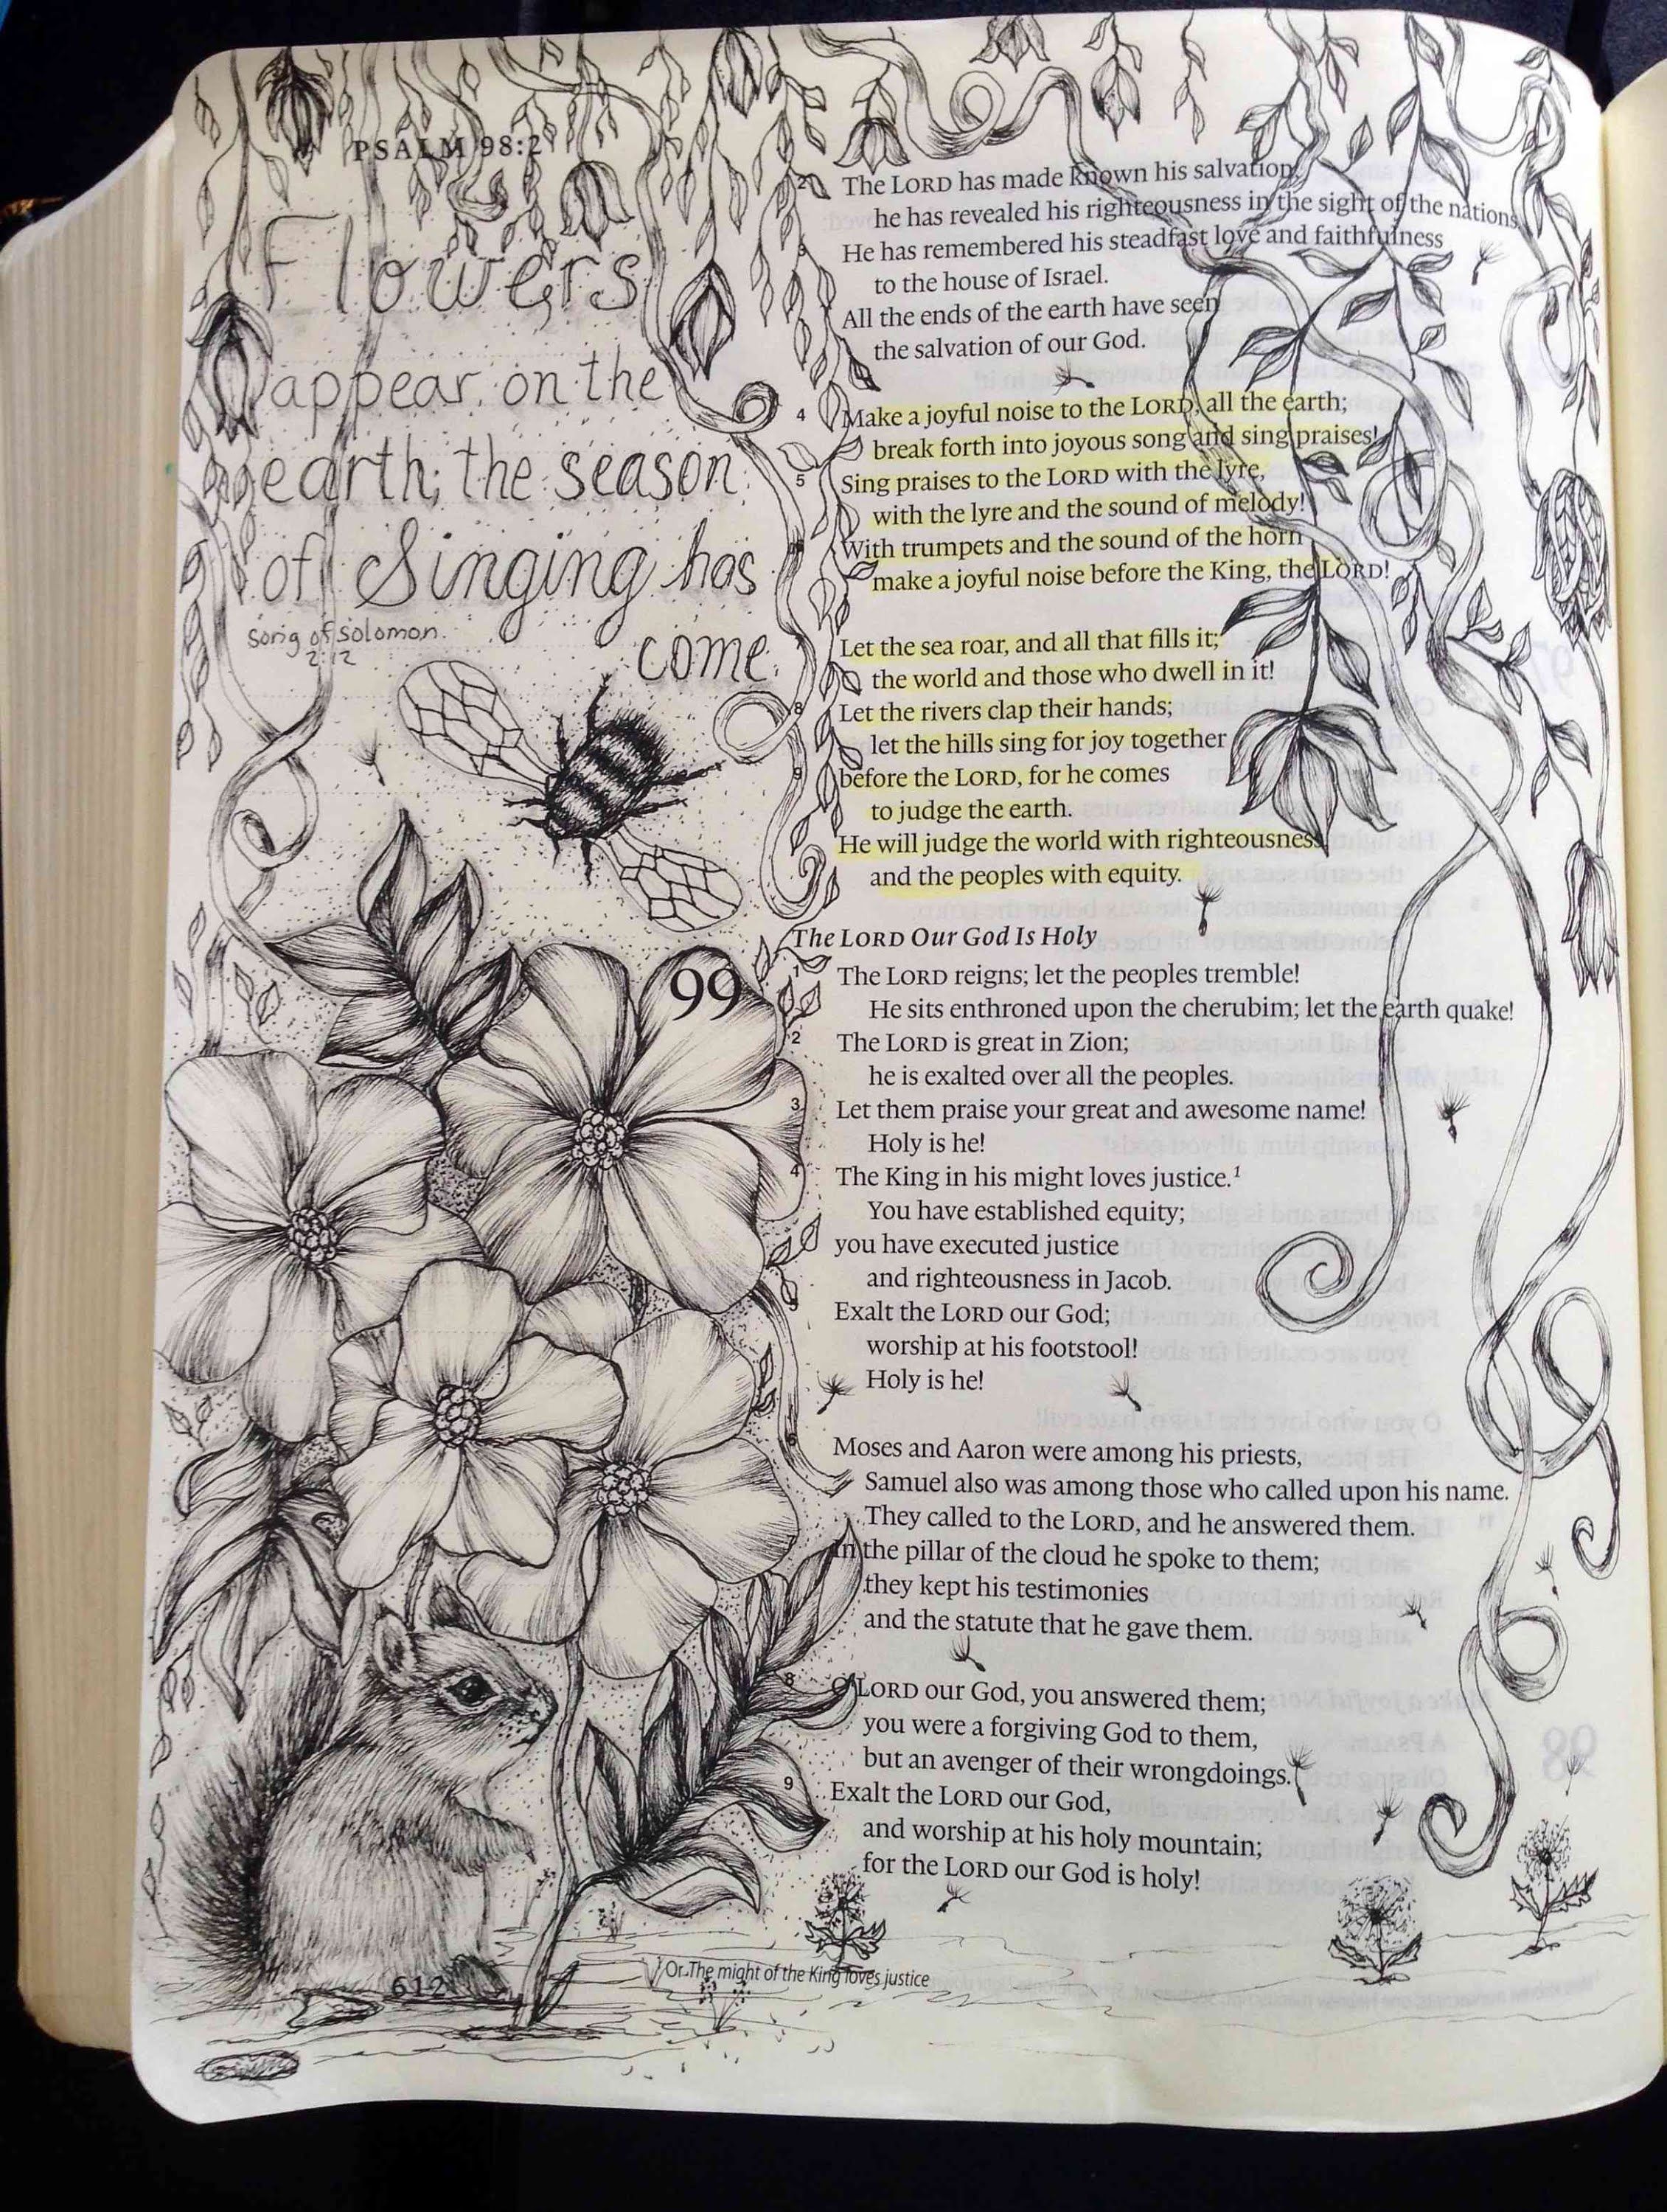 PSALM 98:2
Flowers
appear on the
earth; the season
of Singing has
come.
Song of Solomon
2:12
2 The LORD has made known his salvation;
he has revealed his righteousness in the sight of the nations.
3 He has remembered his steadfast love and faithfulness
to the house of Israel.
All the ends of the earth have seen
the salvation of our God.
4 Make a joyful noise to the LORD, all the earth;
break forth into joyous song and sing praises!
5 Sing praises to the LORD with the lyre,
with the lyre and the sound of melody!
With trumpets and the sound of the horn
make a joyful noise before the King, the LORD!
Let the sea roar, and all that fills it;
the world and those who dwell in it!
8 Let the rivers clap their hands;
let the hills sing for joy together
9 before the LORD, for he comes
to judge the earth.
He will judge the world with righteousness,
and the peoples with equity.
The LORD Our God Is Holy
99
1 The LORD reigns; let the peoples tremble!
He sits enthroned upon the cherubim; let the earth quake!
2 The LORD is great in Zion;
he is exalted over all the peoples.
3 Let them praise your great and awesome name!
Holy is he!
4 The King in his might loves justice.1
You have established equity;
you have executed justice
and righteousness in Jacob.
5 Exalt the LORD our God;
worship at his footstool!
Holy is he!
6 Moses and Aaron were among his priests,
Samuel also was among those who called upon his name.
They called to the LORD, and he answered them.
In the pillar of the cloud he spoke to them;
they kept his testimonies
and the statute that he gave them.
8 O LORD our God, you answered them;
you were a forgiving God to them,
but an avenger of their wrongdoings.
9 Exalt the LORD our God,
and worship at his holy mountain;
for the LORD our God is holy!
1 Or The might of the King loves justice
612